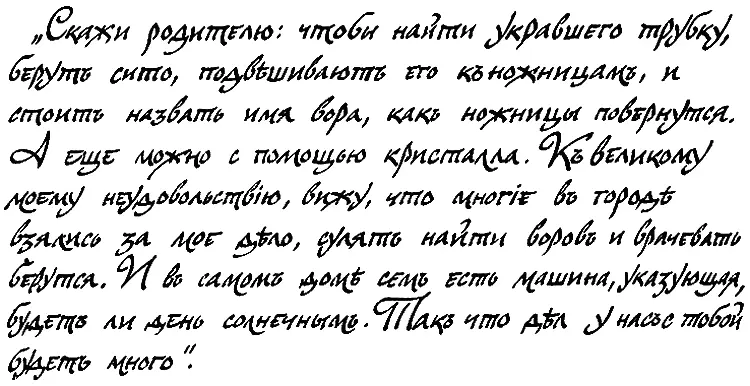 „Скажи родителю: чтобы найти укравшего трубку,
берутъ сито, подвѣшиваютъ его къ ножницамъ, и
стоитъ назвать имя вора, какъ ножницы повернутся.
А еще можно с помощью кристалла. Къ великому
моему неудовольствiю, вижу, что многiе въ городѣ
взялись за мое дѣло, сулятъ найти воровъ и врачевать
берутся. И въ самомъ домѣ семъ есть машина, указующая,
будетъ ли день солнечнымъ. Такъ что дѣл у насъ с тобой
будетъ много".